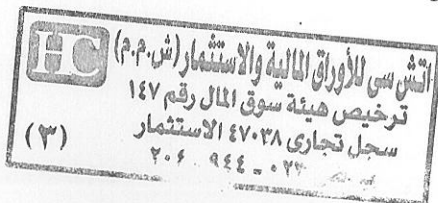 HC
اتش سى للأوراق المالية والاستثمار (ش.م.م)
ترخيص هيئة سوق المال رقم ١٤٧
سجل تجارى ٤٧٠٣٨ الاستثمار
(٣)
٢٠٦ - ٩٤٤ - ٠٢٣